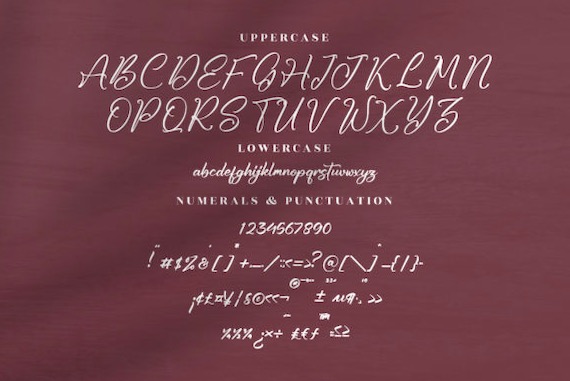 UPPERCASE
ABCDEFGHIJKLMN
OPQRSTUVWXYZ
LOWERCASE
abcdefghijklmnopqrstuvwxyz
NUMERALS & PUNCTUATION
1234567890
!"#$%&'[]+,-./:;<=>?@[\]^_{|}~
¡¢£¤¥¦§©«¬ ± µ¶· »
¿×÷